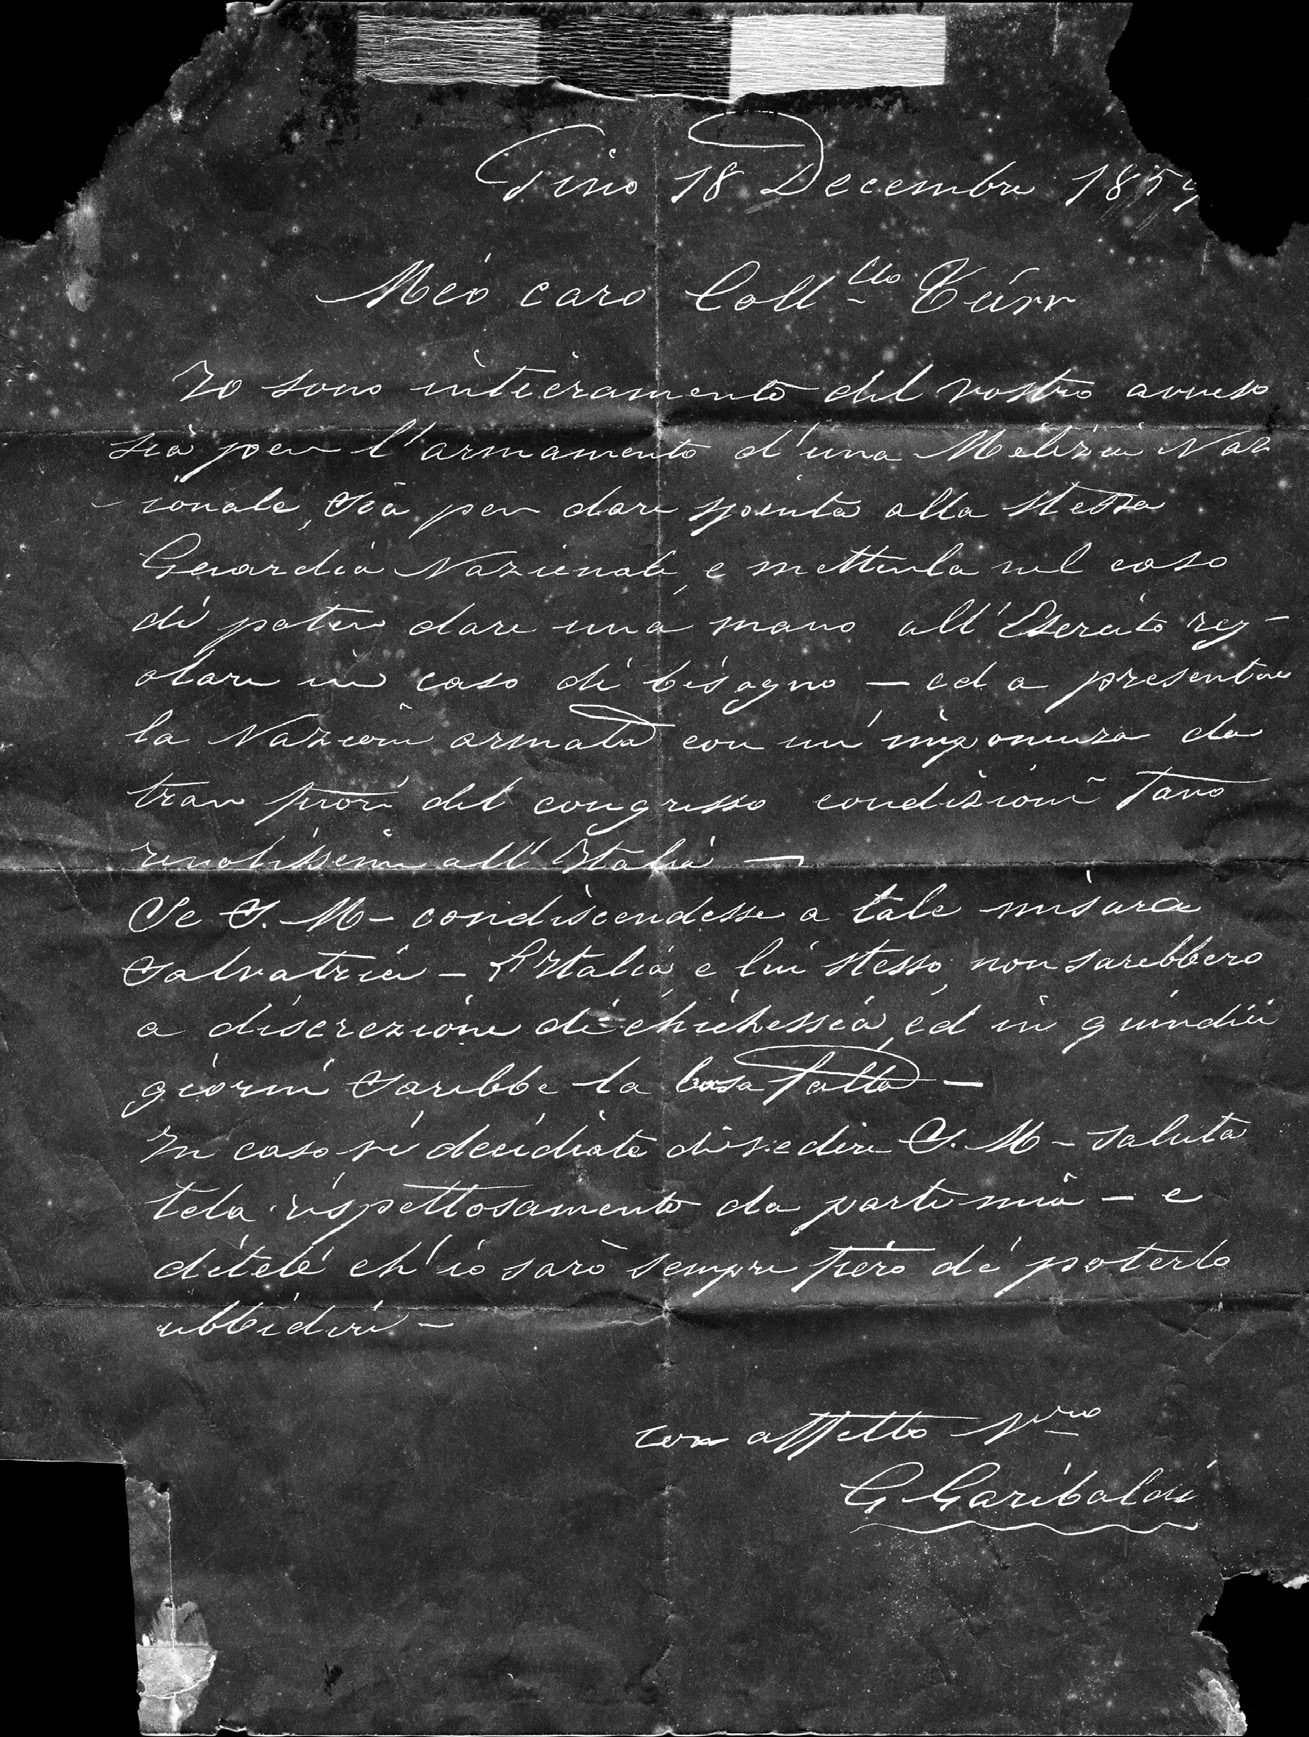 Fino 18 Decembre 1859
Mio caro Coll.llo Türr
Io sono intieramente del vostro avviso
sia per l'armamento d'una Milizia Naz
ionale, sia per dare spinta alla stessa
Guardia Nazionale, e metterla nel caso
di poter dare una mano all'Esercito reg-
olare in caso di bisogno — ed a presentare
la Nazione armata con un'imponenza da
trar fuori del congresso condizioni favo
revolissime all'Italia —
Se S. M— condiscendesse a tale misura
salvatrice — l'Italia, e lui stesso, non sarebbero
a discrezione di chichessia, ed in quindici
giorni sarebbe la cosa fatta —
In caso vi decidiate di vedere S. M— saluta
telo rispettosamente da parte mia — e
ditele ch'io sarò sempre fiero di poterlo
ubbidire —
con affetto vro
G Garibaldi